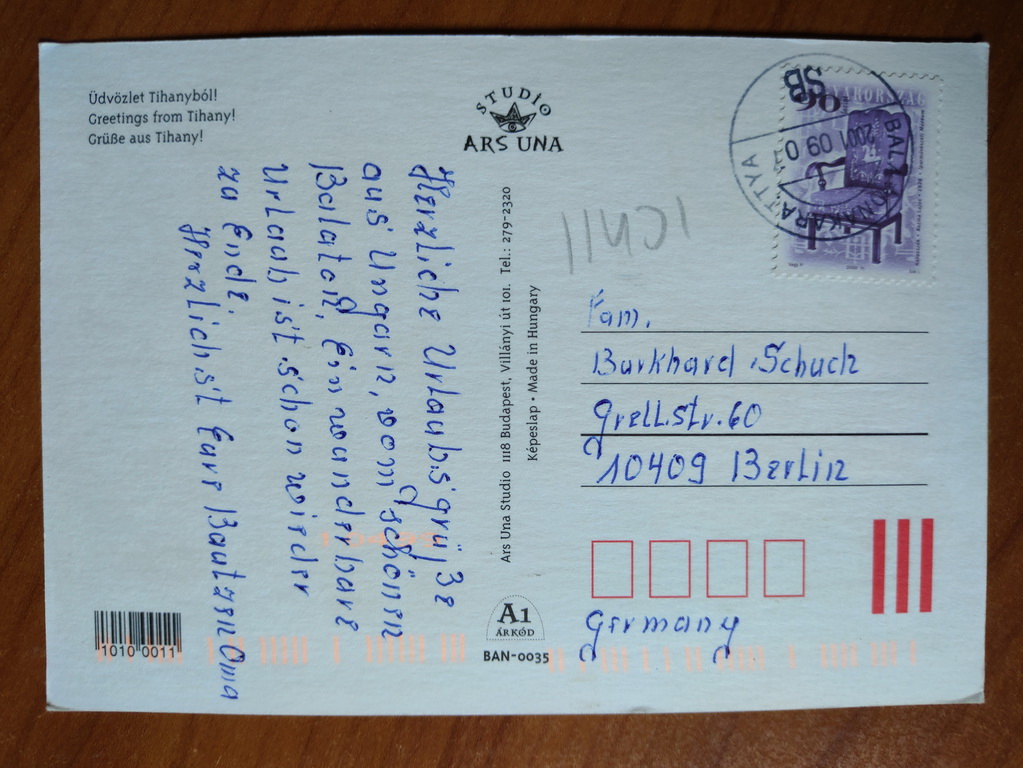 Üdvözlet Tihanyból!
Greetings from Tihany!
Grüße aus Tihany!
STUDIO
ARS UNA
Herzliche Urlaubsgrüße
aus Ungarn, vom schönen
Balaton. Ein wunderbare
Urlaub ist schon wieder
zu Ende.
Herzlichst Eure Bautzen Oma
Ars Una Studio 1118 Budapest, Villányi út 101. Tel.: 279-2320
Képeslap • Made in Hungary
11401
MAGYARORSZÁG
90
BALATONAKARATTYA
2001 09 0
SB
Fam.
Burkhard Schuch
Grellstr. 60
10409 Berlin
Germany
A1
ÁRKÓD
BAN-0035
1010 0011